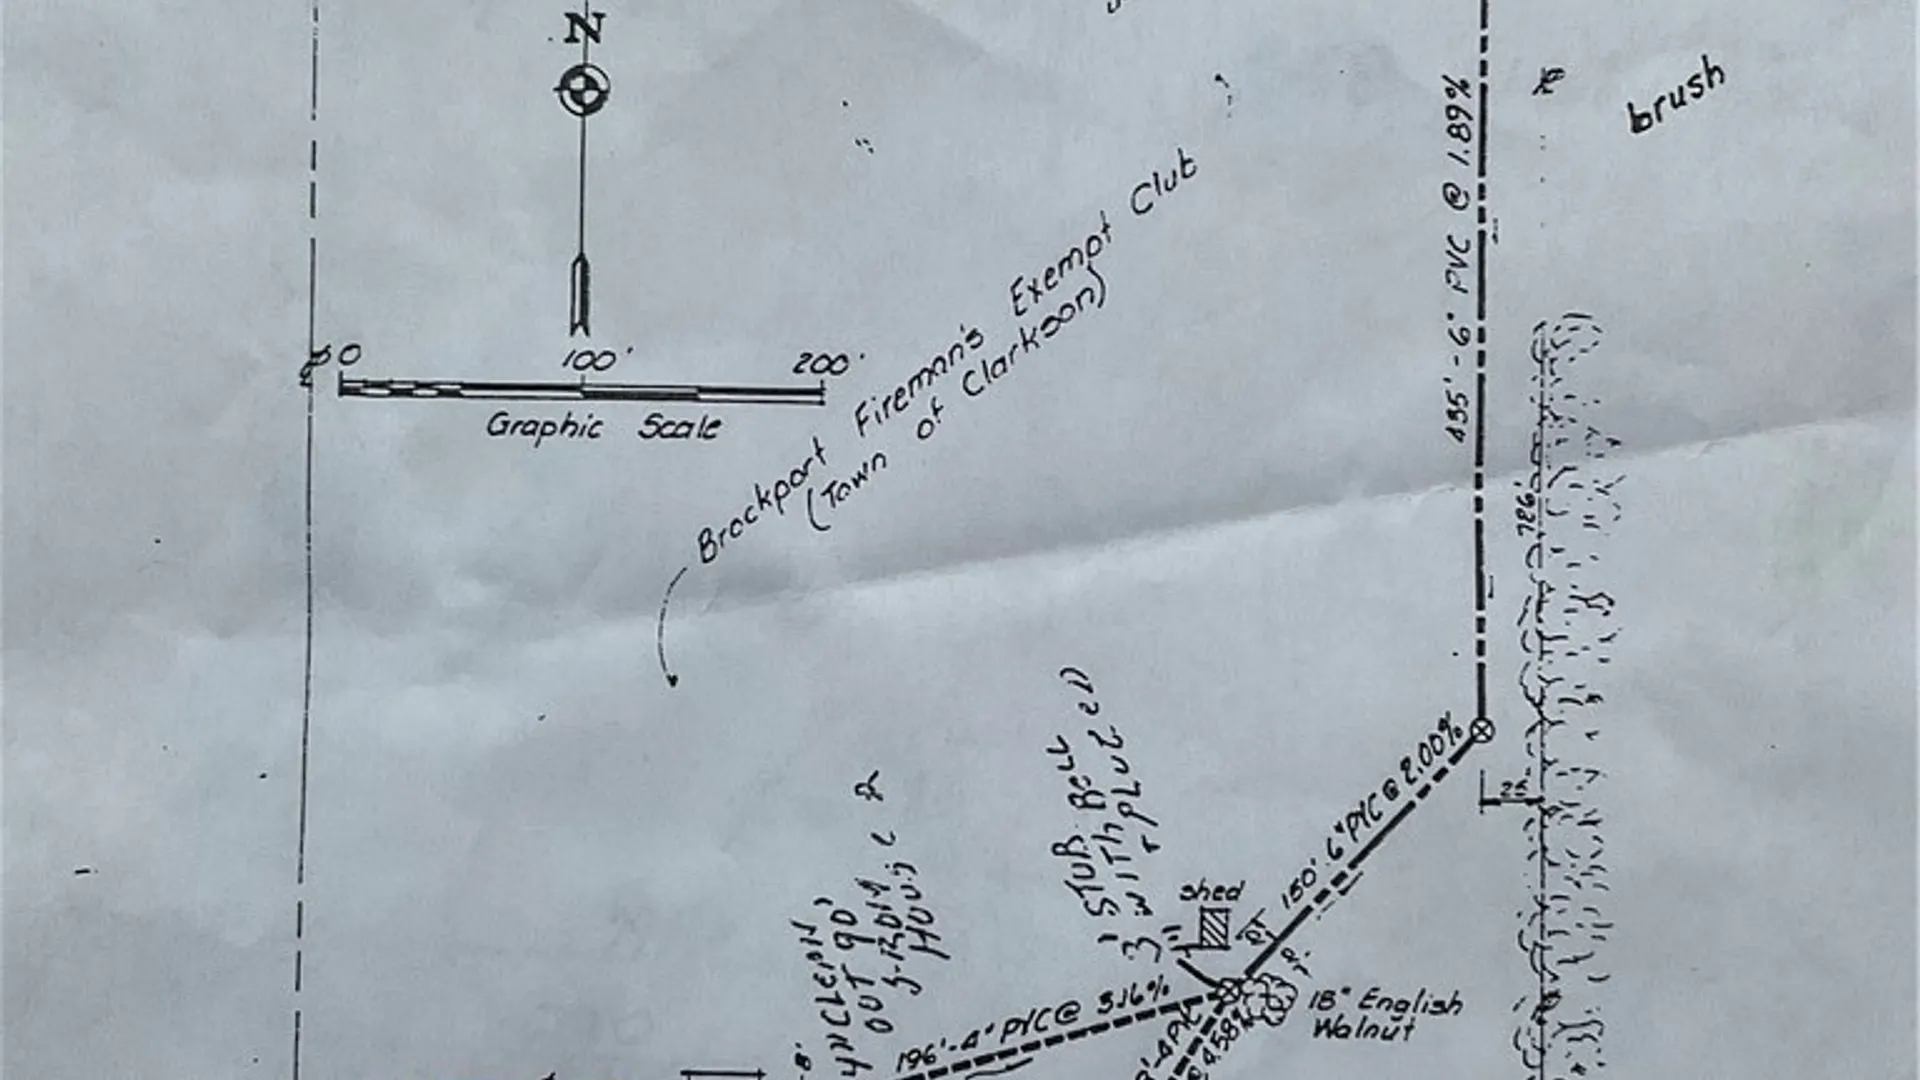 N
0 100' 200'
Graphic Scale
Brockport Fireman's Exempt Club
(Town of Clarkson)
brush
435' - 6" PVC @ 1.89%
726'
25'
150' 6" PVC @ 2.00%
shed
3' STUB
WITH PLUG
OUT 90'
FROM
HOUSE
196' - 4" PVC @ 3.16%
18" English
Walnut
4" PVC
@ 4.58%